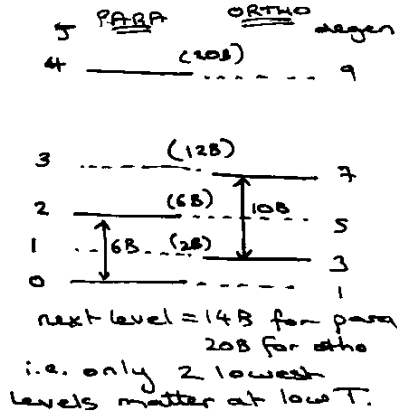 J PARA ORTHO degen
4 (20B) 9
3 (12B) 7
2 (6B) 10B 5
1 6B (2B) 3
0 1
next level = 14B for para
20B for otho
i.e. only 2 lowest
levels matter at low T.